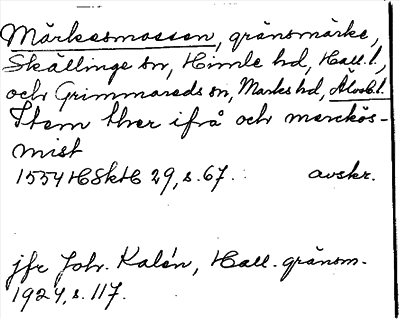 Märkesmossen, gränsmärke,
Skällinge sn, Himle hd, Hall. l.,
och Grimmareds sn, Marks hd, Älvsb l.
Item ther ifrå och merckös-
mist
1554 HSkH 29, s. 67. avskr.
jfr Joh. Kalén, Hall. gränsm.
1924, s. 117.